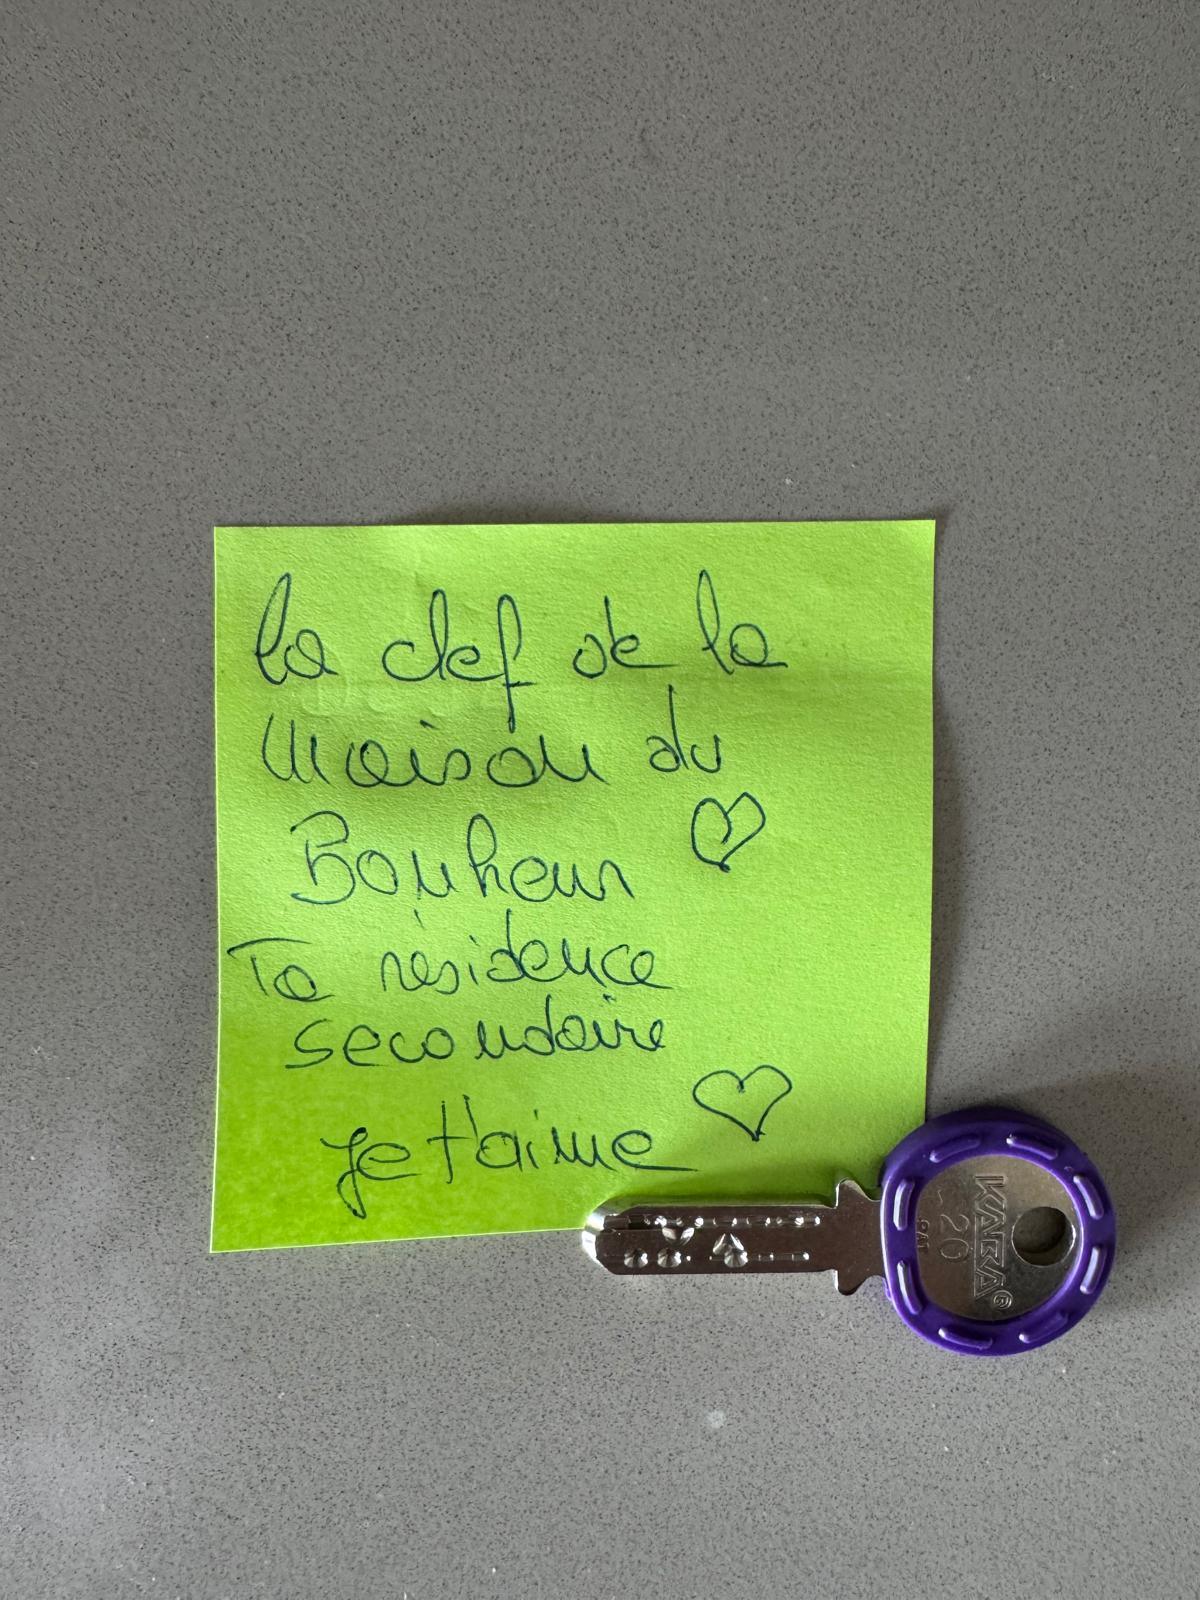 la clef de la
maison du
Bonheur ♡
Ta résidence
secondaire
je t'aime ♡
KABA®
20
PAT